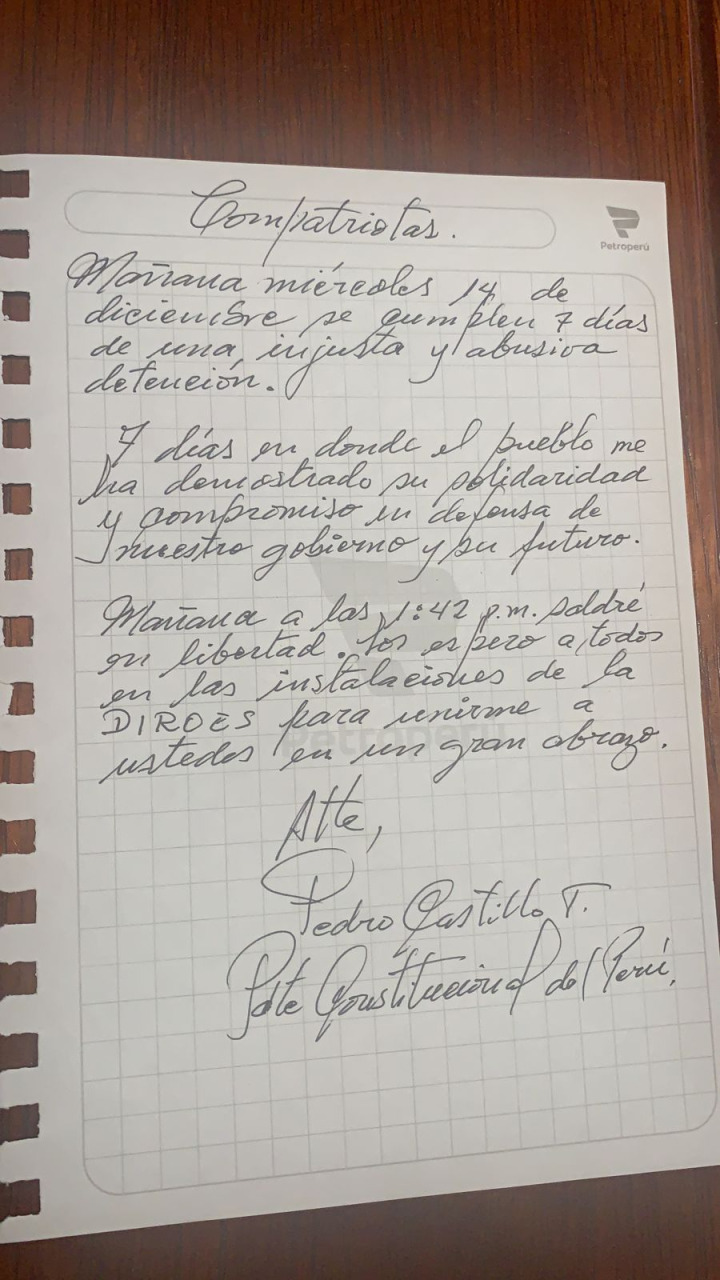 Compatriotas.
Petroperú
Mañana miércoles 14 de
diciembre se cumplen 7 días
de una, injusta y abusiva
detención.
7 días en donde el pueblo me
ha demostrado su solidaridad
y compromiso en defensa de
nuestro gobierno y su futuro.
Mañana a las 1:42 p.m. saldré
en libertad. Los espero a todos
en las instalaciones de la
DIROES para unirme a
ustedes en un gran abrazo.
Petroperú
Atte,
Pedro Castillo T.
Pdte Constitucional del Perú.